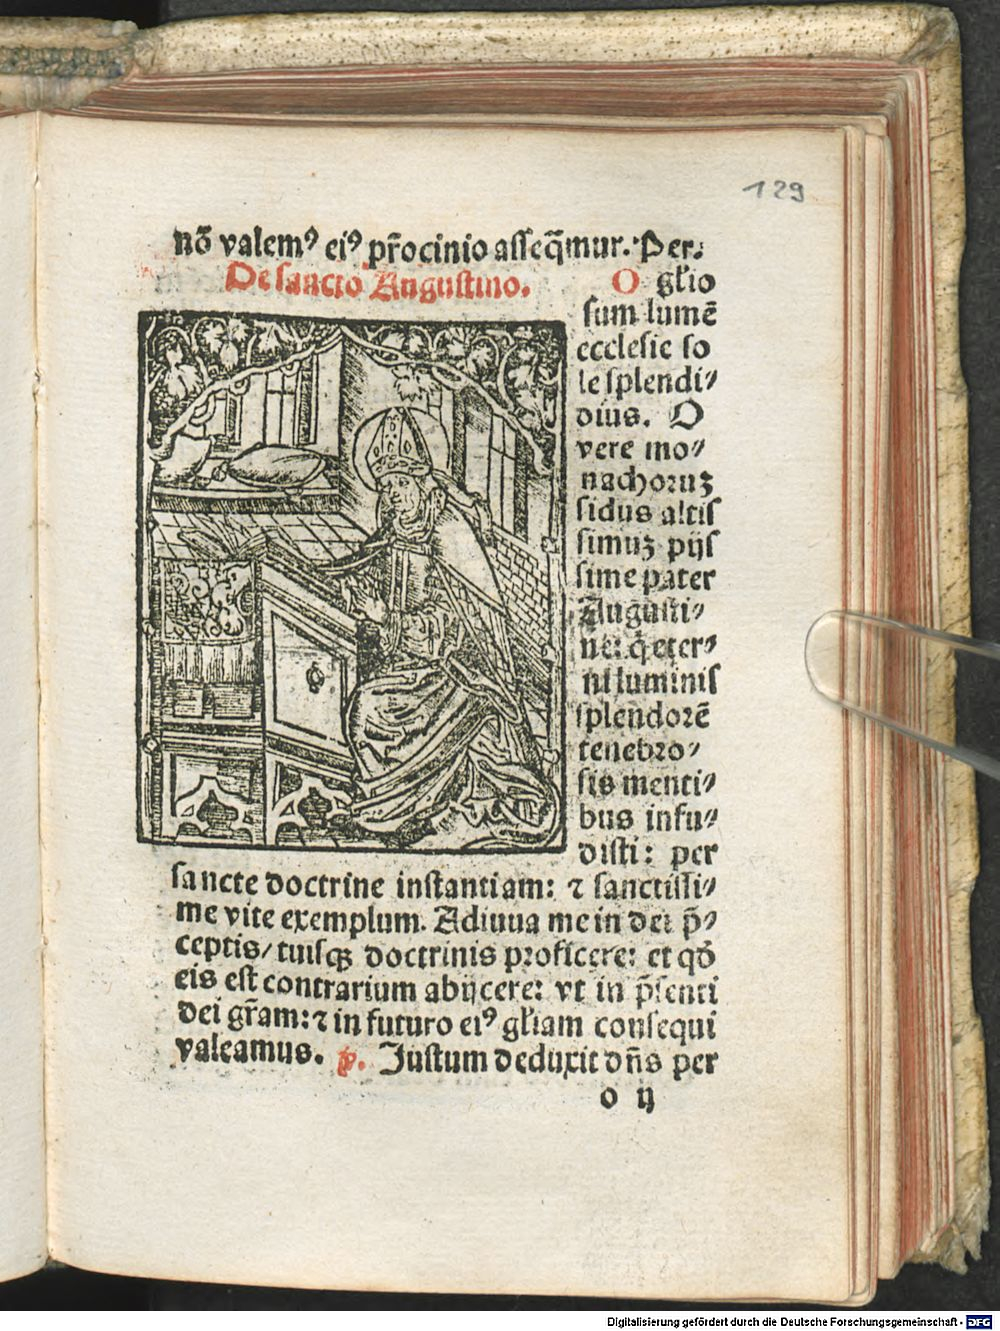 129
nō valemꝰ eiꝰ pr̄ocinio aſſeq̄mur. Per:
De ſancto Auguſtino. O gl̄io
ſum lumē
eccleſie ſo
le ſplendi⸗
dius. O
vere mo⸗
nachoruꝫ
ſidus altiſ
ſimuꝫ pijſ
ſime pater
Auguſti⸗
ne: q̄ eter⸗
ni luminiſ
ſplendorē
tenebro⸗
ſis menti⸗
bus infu⸗
diſti: per
ſancte doctrine inſtantiam: ⁊ ſanctiſſi⸗
me vite exemplum. Adiuua me in dei p̄⸗
ceptis/ tuiſqꝫ doctrinis proficere: et qđ
eis eſt contrarium abijcere: vt in p̄ſenti
dei gr̄am: ⁊ in futuro eiꝰ gl̄iam conſequi
valeamus. ꝟ. Juſtum deduxit dn̄s per
o ij
Digitalisierung gefördert durch die Deutsche Forschungsgemeinschaft - DFG